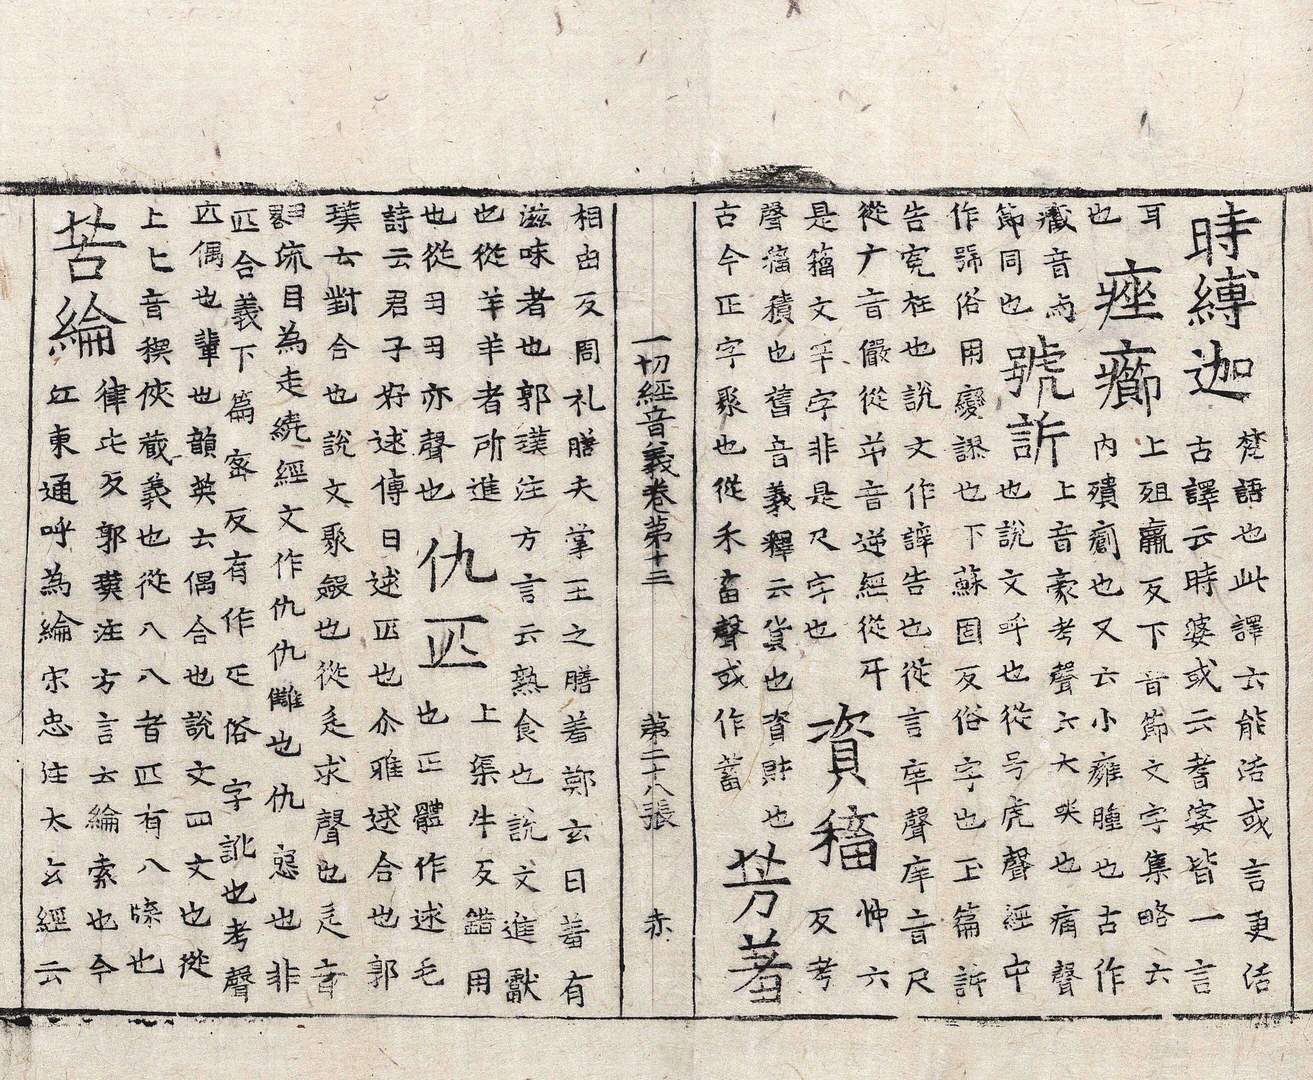 時縛迦
梵語也此譯云能活或言更活
古譯云時婆或云耆婆皆一言
耳
也
痤癤
上殂羸反下音節文字集略云
內殨瘡也又云小癰腫也古作
音卨
節同也
號訴
上音豪考聲云大哭也痛聲
也說文呼也從号虎聲經中
作號俗用變謬也下蘇固反俗字也玉篇訴
告寃枉也說文作諦告也從言㡿聲㡿音尺
從广音儼從屰音逆經從斥
是籀文罕字非是尺字也
資稸
忡六
反考
聲稸積也舊音義釋云貨也資財也
古今正字聚也從禾畜聲或作蓄
芳羞
一切經音義卷第十三 第二十八張 赤
相由反周礼膳夫掌王之膳羞鄭玄曰羞有
滋味者也郭璞注方言云熟食也說文進獻
也從羊羊者所進
也從丑丑亦聲也
仇匹
上渠牛反錯用
也正體作逑毛
詩云君子好逑傳曰逑匹也尒雅逑合也郭
璞云對合也說文聚斂也從辵求聲也辵音
流目為走繞經文作仇仇讎也仇惡也非
匹合義下篇蜜反有作疋俗字訛也考聲
匹偶也輩也韻英云偶合也說文四丈也從
上匸音稧俠藏義也從八八者匹有八牒也
苦綸
律屯反郭璞注方言云綸索也今
江東通呼為綸宋忠注太玄經云